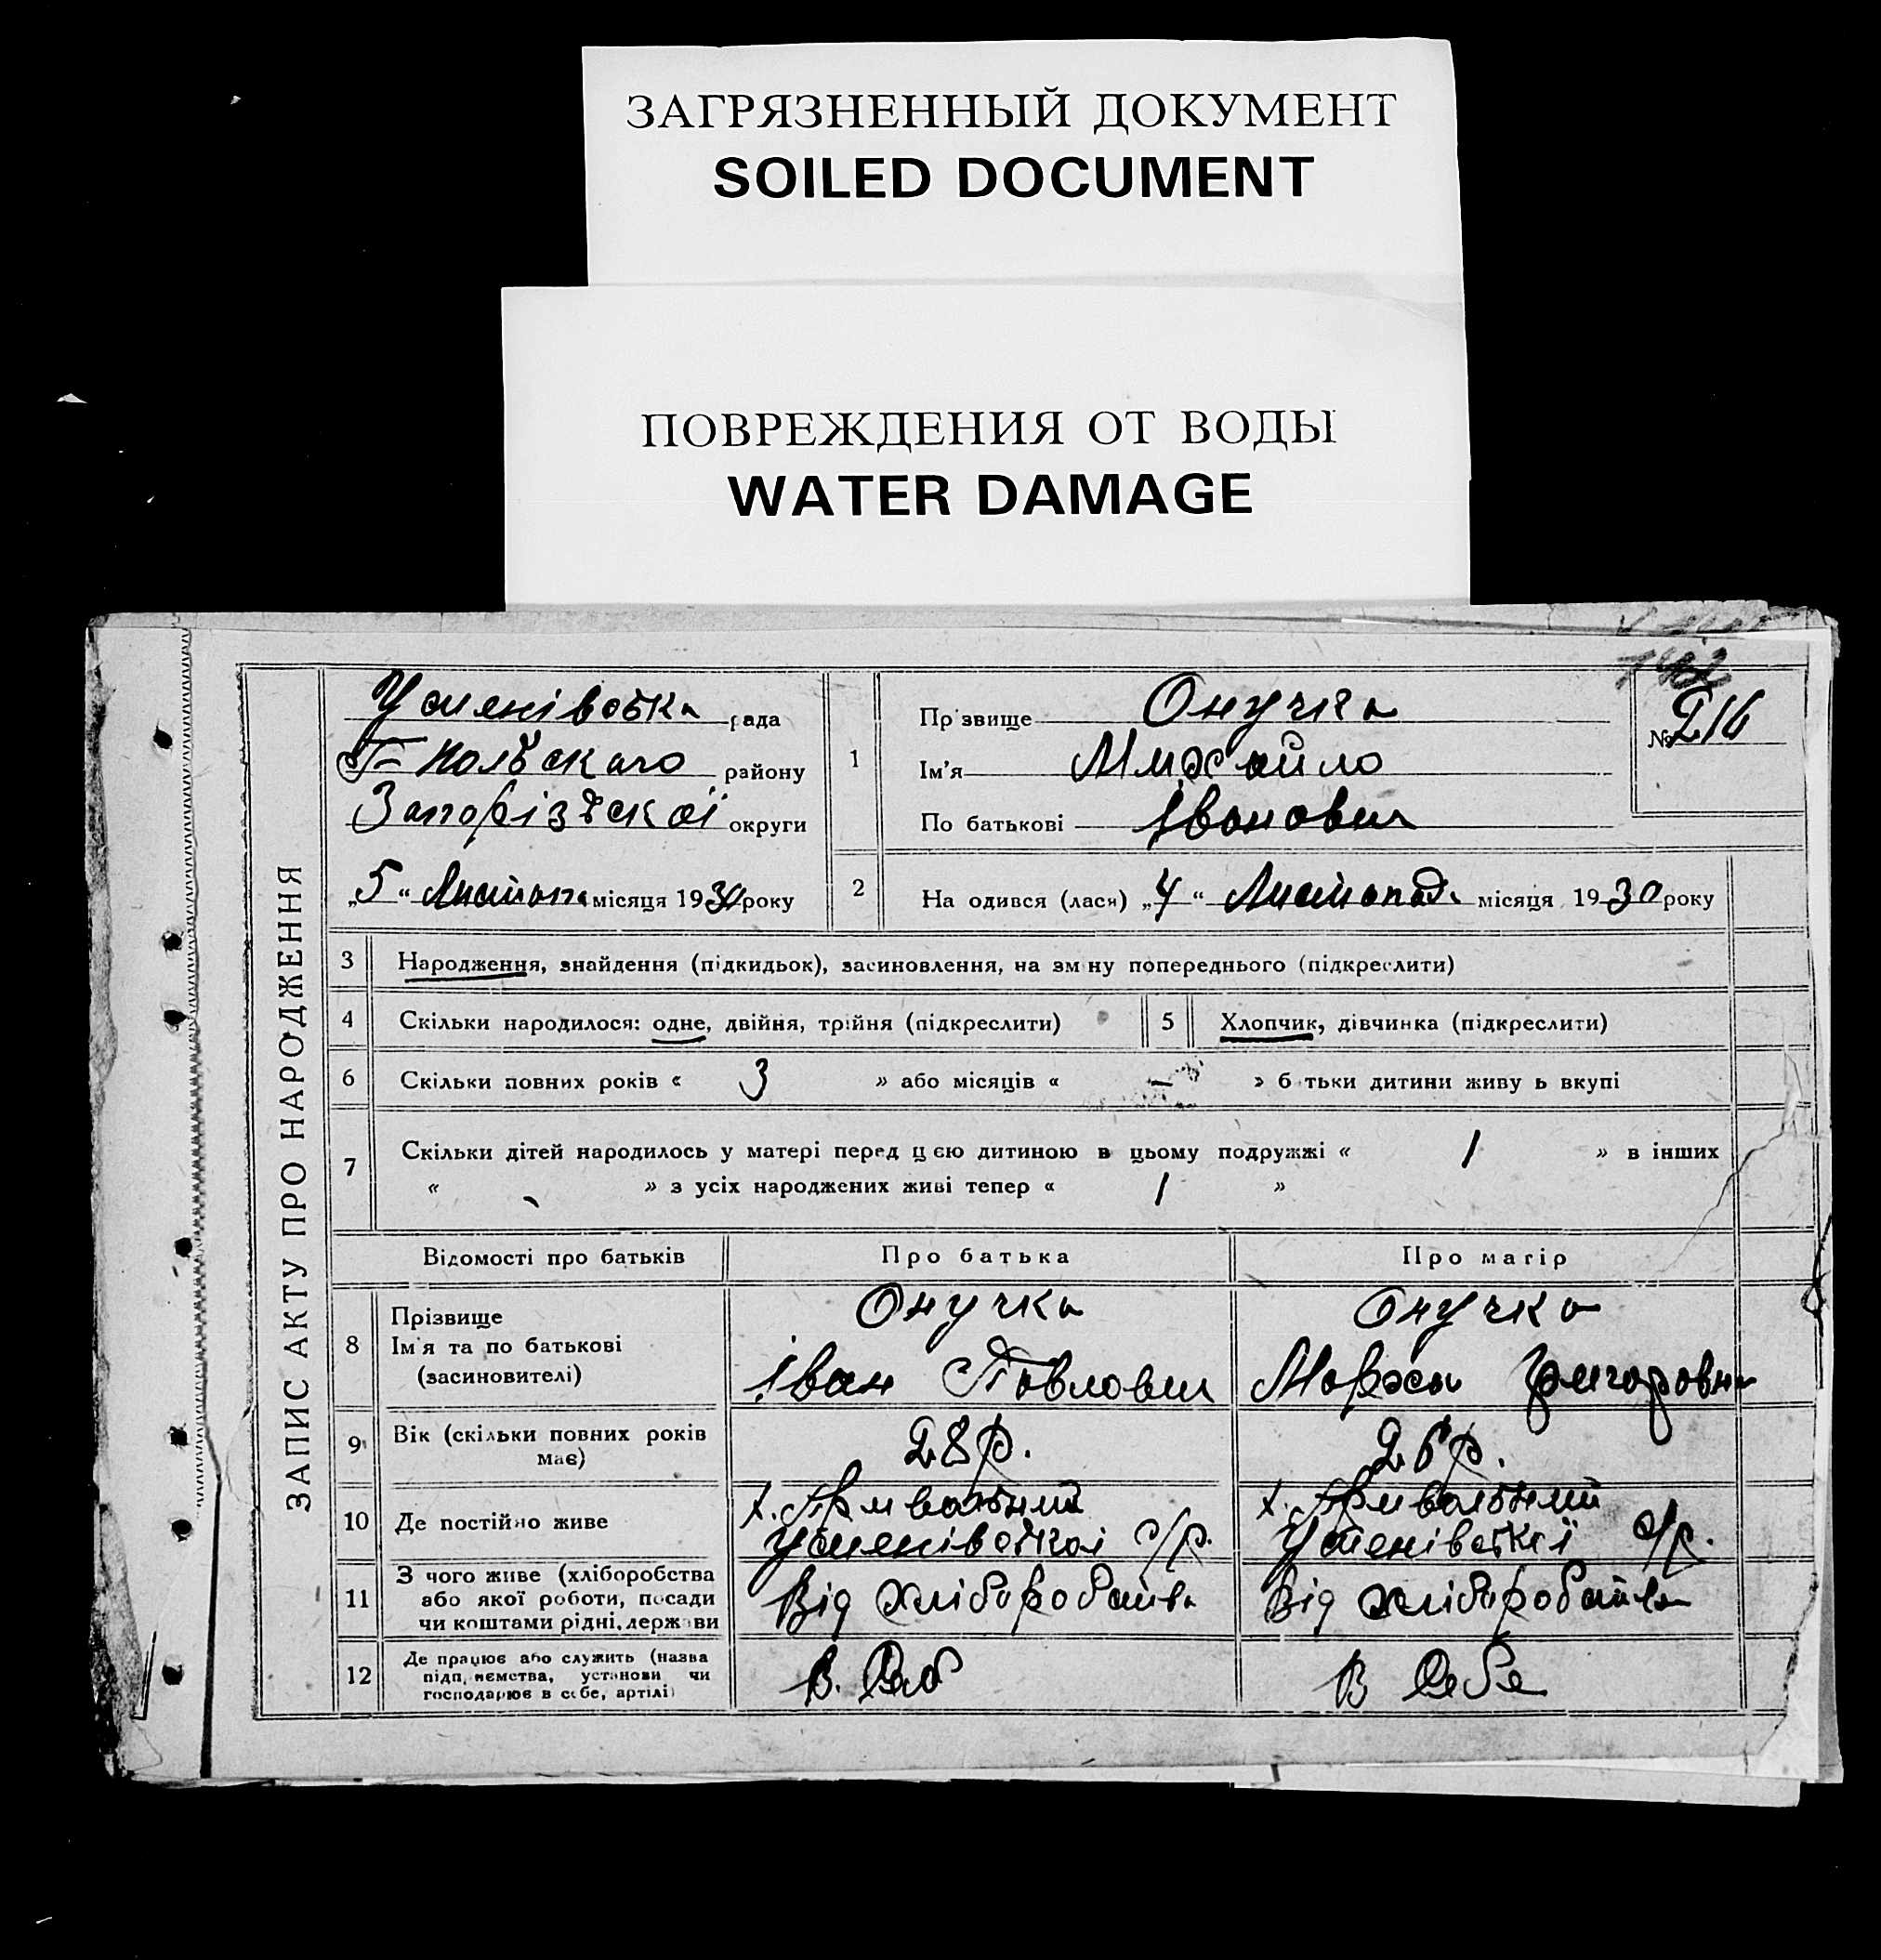 ЗАГРЯЗНЕННЫЙ ДОКУМЕНТ
SOILED DOCUMENT
ПОВРЕЖДЕНИЯ ОТ ВОДЫ
WATER DAMAGE
ЗАПИС АКТУ ПРО НАРОДЖЕННЯ
Успенівська рада
Г-Польского району
Запорізської округи
„5“ Листопа місяця 1930 року
1
Прізвище Онучка
Ім'я Михайло
По батькові Іванович
№ 216
2 На одився (лася) „4“ Листопад місяця 1930 року
3 Народження, знайдення (підкидьок), засиновлення, на зміну попереднього (підкреслити)
4 Скільки народилося: одне, двійня, трійня (підкреслити) 5 Хлопчик, дівчинка (підкреслити)
6 Скільки повних років « 3 » або місяців « – » б тьки дитини живу ь вкупі
7 Скільки дітей народилось у матері перед цією дитиною в цьому подружжі « 1 » в інших
« » з усіх народжених живі тепер « 1 »
Відомості про батьків Про батька Про матір
8 Прізвище Онучка Онучка
Ім'я та по батькові Іван Павлович Марфа Григоровна
(засиновителі)
9 Вік (скільки повних років має) 28 р. 26 р.
10 Де постійно живе х. Привольний х. Привольний
Успенівської с/р. Успенівської с/р.
11 З чого живе (хліборобства
або якої роботи, посади Від хліборобства Від хліборобства
чи коштами рідні, держави
12 Де працює або служить (назва
підприємства, установи чи В. Себ В Себе
господарює в себе, артілі)